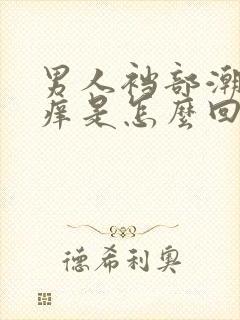 男人裆部潮
痒是怎麼回
德希利奥